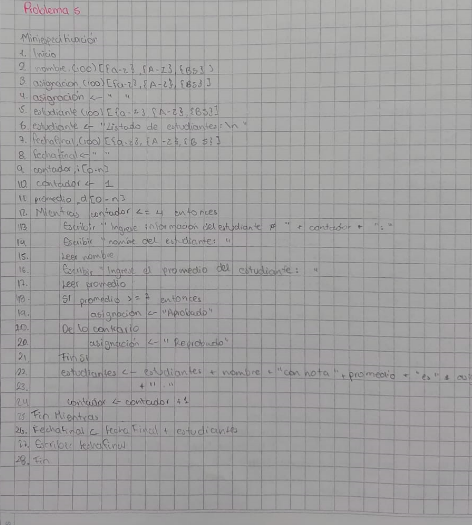 Problema 5
Miniespecificación
1. Inicio
2. nombre (100) [{a-z}, {A-Z}, {BS}]
3. asignacion (100) [{a-z}, {A-Z}, {BS}]
4. asignación <- " "
5. estudiante (100) [{a-z} {A-Z}, {BS}]
6. estudiante <- "Listado de estudiantes:\n"
7. fechafinal (100) [{a-z}, {A-Z}, {BS}]
8. fechafinal <- " "
9. contador, i [0-n]
10. contador <- 1
11. promedio, d [0-n]
12. Mientras contador <= 4 entonces
13. Escribir "Ingrese información del estudiante # " + contador + ":"
14. Escribir "nombre del estudiante: "
15. Leer nombre
16. Escribir "Ingrese el promedio del estudiante: "
17. Leer promedio
18. Si promedio >= 7 entonces
19. asignación <- "Aprobado"
20. De lo contrario
20. asignación <- "Reprobado"
21. Fin Si
22. estudiantes <- estudiantes + nombre + "con nota" + promedio + "es" +
23. + "
24. contador <- contador +1
25. Fin Mientras
26. Fechafinal <- fecha Final + estudiantes
27. Escribir fechafinal
28. Fin